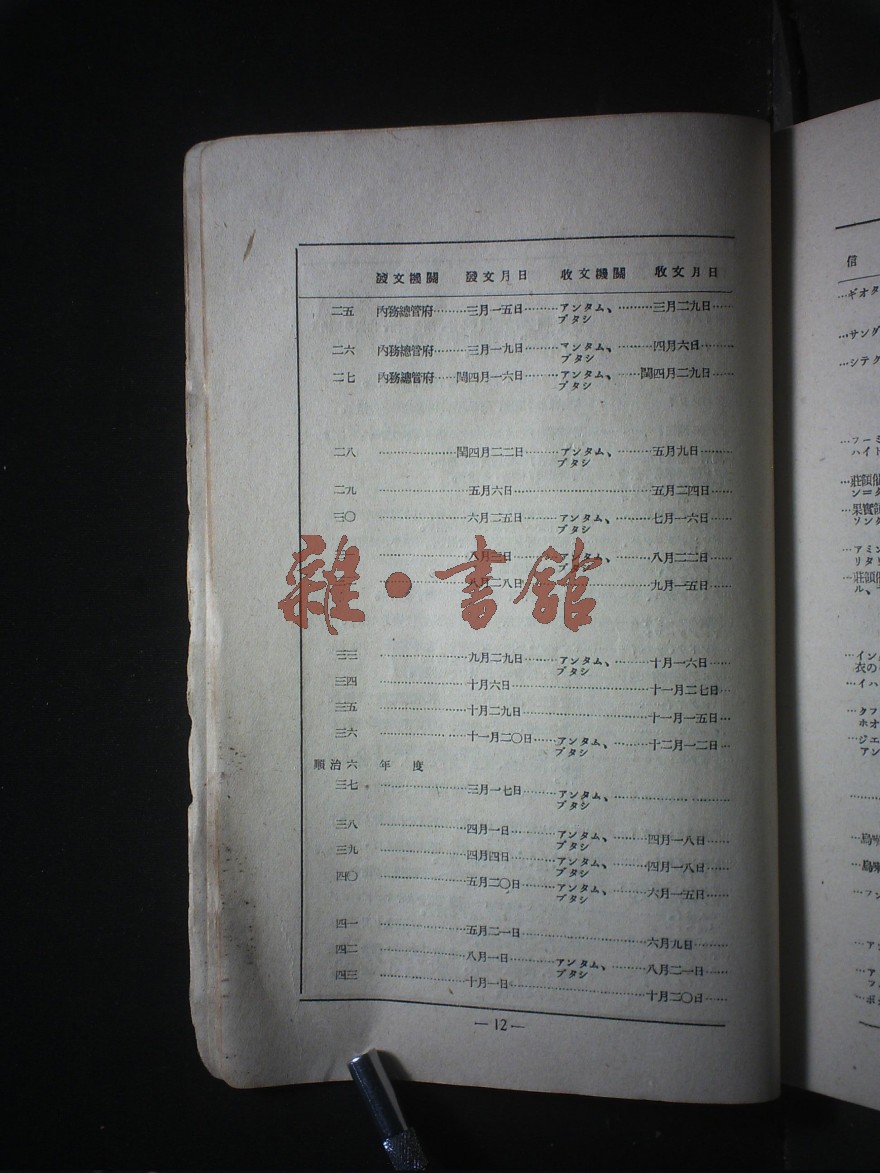 發文機關 發文月日 收文機關 收文月日
二五 內務總管府………三月一五日………アンタム、………三月二九日……
ブタシ
二六 內務總管府………三月一九日………マンタム、………四月六日……
ブタシ
二七 內務總管府……閏四月一六日………アンタム、……閏四月二九日……
ブタシ
二八 ………………閏四月二二日………アンタム、………五月九日……
ブタシ
二九 ………………五月六日………………………五月二四日……
三〇 ………………六月二五日………アンタム、………七月一六日……
ブタシ
八月三日………アンタム、………八月二二日……
ブタシ
八月二八日………………………九月一五日……
雜·書館
三三 ………………九月二九日………アンタム、………十月一六日……
ブタシ
三四 ………………十月六日………………………十一月二七日…
三五 ………………十月二九日………………………十一月一五日…
三六 ………………十一月二〇日……アンタム、………十二月一二日…
ブタシ
順治六年度
三七 ………………三月一七日………アンタム、………………………
ブタシ
三八 ………………四月一日………アンタム、………四月一八日……
ブタシ
三九 ………………四月四日………アンタム、………四月一八日……
ブタシ
四〇 ………………五月二〇日………アンタム、………六月一五日……
ブタシ
四一 ………………五月二一日………………………六月九日……
四二 ………………八月一日………アンタム、………八月二一日……
ブタシ
四三 ………………十月一日………………………十月二〇日……
—12—
信
…ギオタ
…サング
…シテク
…フーミ
ハイト
…莊頷催
ソンタ
…アミン
リタリ
…莊頷催
ル、
…イン
衣の
…イハ
…タフ
ホオ
…ジエ
アン